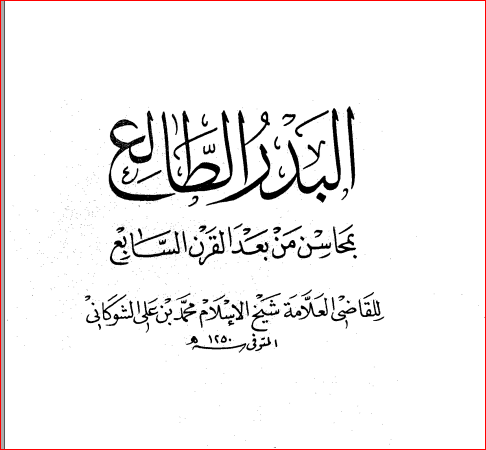 البَدْرُ الطَّالِع
بمَحَاسِن مَنْ بَعْدَ القَرْن السَّابِعْ
للقَاضِى العَلَّامَة شَيْخ الإِسْلَامْ محمَّد بْن عَلى الشوكانى
المتوفى سنة ١٢٥٠ هـ